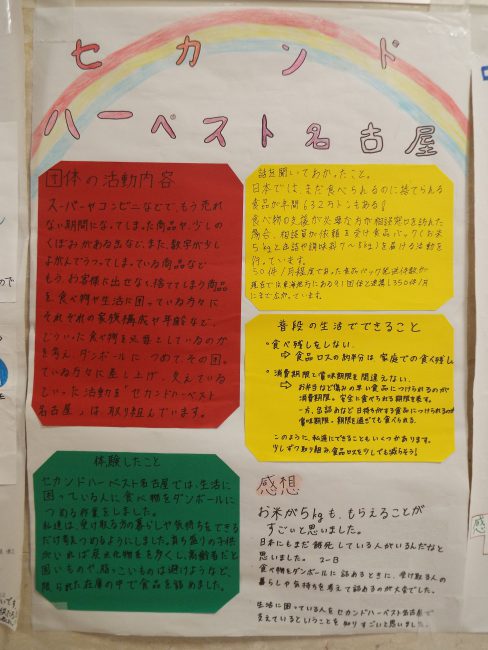 セカンド
ハーベスト名古屋
団体の活動内容
スーパーやコンビニなどで、もう売れ
ない期間になってしまった商品や、少しの
くぼみがある缶など、また、数字が少し
よがんでうつってしまっている商品など
もう、お客様に出せない捨ててしまう商品
を食べ物や生活に困っている方々に
それぞれの家族構成や年齢など、
どういった食べ物を必要としているのか
を考え、ダンボールに、つめて、その困っ
ている方々に差し上げ、支えている
といった活動を「セカンドハーベスト
名古屋」は、取り組んでいます。
話を聞いてわかったこと。
日本では まだ食べられるのに捨てられる
食品が年間632万トンもある!
食べ物の支援が必要な方が相談窓口を訪れた
場合、相談員が依頼を受け食品パック(お米
5kgと缶詰や調味料7〜8kg)を届ける活動を
行っています。
50件/月程度であった食品パック発送件数が
現在では東海地方にある
団体と連携し350件/月
にまで広がっています。
普段の生活でできること
・食べ残しをしない。
⇒食品ロスの約半分は、家庭での食べ残し
・消費期限と賞味期限を間違えない。
⇒お弁当など傷みの早い食品につけられるのが
消費期限。安全に食べられる期限を表す。
一方、缶詰めなど日持ちがする食品につけられるのが
賞味期限。期限を過ぎても食べられる。
このように、私達にできることもいくつかあります。
少しずつ取り組み食品ロスを少しでも減らそう!
体験したこと
セカンドハーベスト名古屋では、生活に
困っている人に食べ物をダンボールに
つめる作業をしました。
私達は、受け取る方の暮らしや気持ちをできる
だけ考えつめるようにしました。育ち盛りの子供
がいれば炭水化物を多くし、高齢者だと
固いものや、脂っこいものは避けようなど、
限られた在庫の中で食品を詰めました。
感想
お米が5kgも、もらえることが
すごいと思いました。
日本にもまだ餓死している人がいるんだなと
思いました。 2-日
食べ物をダンボールに詰めるときに、受け取る人の
暮らしや気持ちを考えて詰めるのが大変でした。
生活に困っている人をセカンドハーベスト名古屋で
支えているということを知りすごいと思いました。